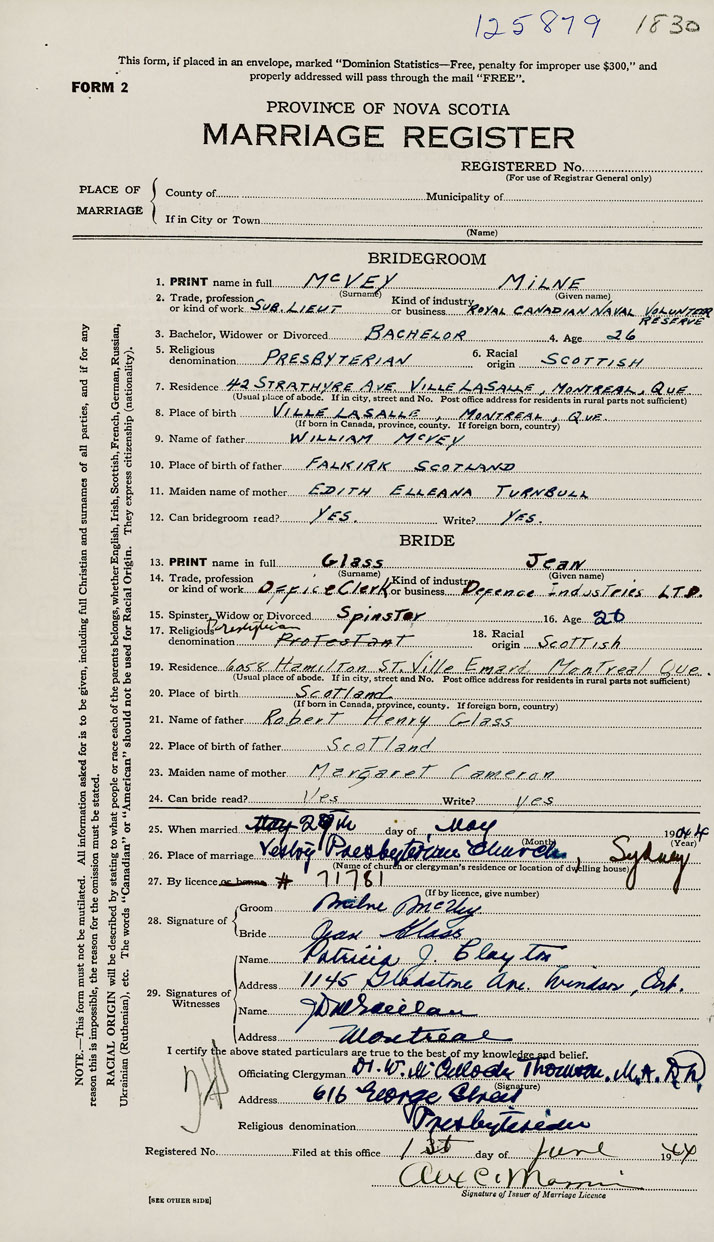 125879 1830
This form, if placed in an envelope, marked "Dominion Statistics—Free, penalty for improper use $300," and
properly addressed will pass through the mail "FREE".
FORM 2
PROVINCE OF NOVA SCOTIA
MARRIAGE REGISTER
REGISTERED No.
(For use of Registrar General only)
PLACE OF MARRIAGE
County of Municipality of
If in City or Town
(Name)
BRIDEGROOM
1. PRINT name in full McVEY MILNE
(Surname) (Given name)
2. Trade, profession or kind of work SUB. LIEUT Kind of industry or business ROYAL CANADIAN NAVAL VOLUNTEER RESERVE
3. Bachelor, Widower or Divorced BACHELOR 4. Age 26
5. Religious denomination PRESBYTERIAN 6. Racial origin SCOTTISH
7. Residence 42 STRATHYRE AVE. VILLE LASALLE, MONTREAL, QUE
(Usual place of abode. If in city, street and No. Post office address for residents in rural parts not sufficient)
8. Place of birth VILLE LASALLE, MONTREAL, QUE.
(If born in Canada, province, county. If foreign born, country)
9. Name of father WILLIAM McVEY
10. Place of birth of father FALKIRK SCOTLAND
11. Maiden name of mother EDITH ELLEANA TURNBULL
12. Can bridegroom read? YES. Write? YES.
BRIDE
13. PRINT name in full Glass Jean
(Surname) (Given name)
14. Trade, profession or kind of work Office Clerk Kind of industry or business Defence Industries LTD.
15. Spinster, Widow or Divorced Spinster 16. Age 26
17. Religious denomination Presbyterian Protestant 18. Racial origin Scottish
19. Residence 6058 Hamilton ST. Ville Emard Montreal Que.
(Usual place of abode. If in city, street and No. Post office address for residents in rural parts not sufficient)
20. Place of birth Scotland
(If born in Canada, province, county. If foreign born, country)
21. Name of father Robert Henry Glass
22. Place of birth of father Scotland
23. Maiden name of mother Margaret Cameron
24. Can bride read? Yes Write? Yes
25. When married May 29th day of May 1944
(Month) (Year)
26. Place of marriage Presbyterian Church, Sydney
(Name of church or clergyman's residence or location of dwelling house)
27. By licence or banns # 71781
(If by licence, give number)
28. Signature of
Groom Milne McVey
Bride Jean Glass
29. Signatures of Witnesses
Name Patricia J. Clayton
Address 1145 Gladstone Ave. Windsor, Ont.
Name
Address Montreal
I certify the above stated particulars are true to the best of my knowledge and belief.
Officiating Clergyman Dr. W. Thomson. M.A.
(Signature)
Address 616 George Street
Religious denomination Presbyterian
Registered No. Filed at this office 1st day of June 1944
Signature of Issuer of Marriage Licence
[SEE OTHER SIDE]
NOTE.—This form must not be mutilated. All information asked for is to be given, including full Christian and surnames of all parties, and if for any
reason this is impossible, the reason for the omission must be stated.
RACIAL ORIGIN will be described by stating to what people or race each of the parents belongs, whether English, Irish, Scottish, French, German, Russian,
Ukrainian (Ruthenian), etc. The words "Canadian" or "American" should not be used for Racial Origin. They express citizenship (nationality).